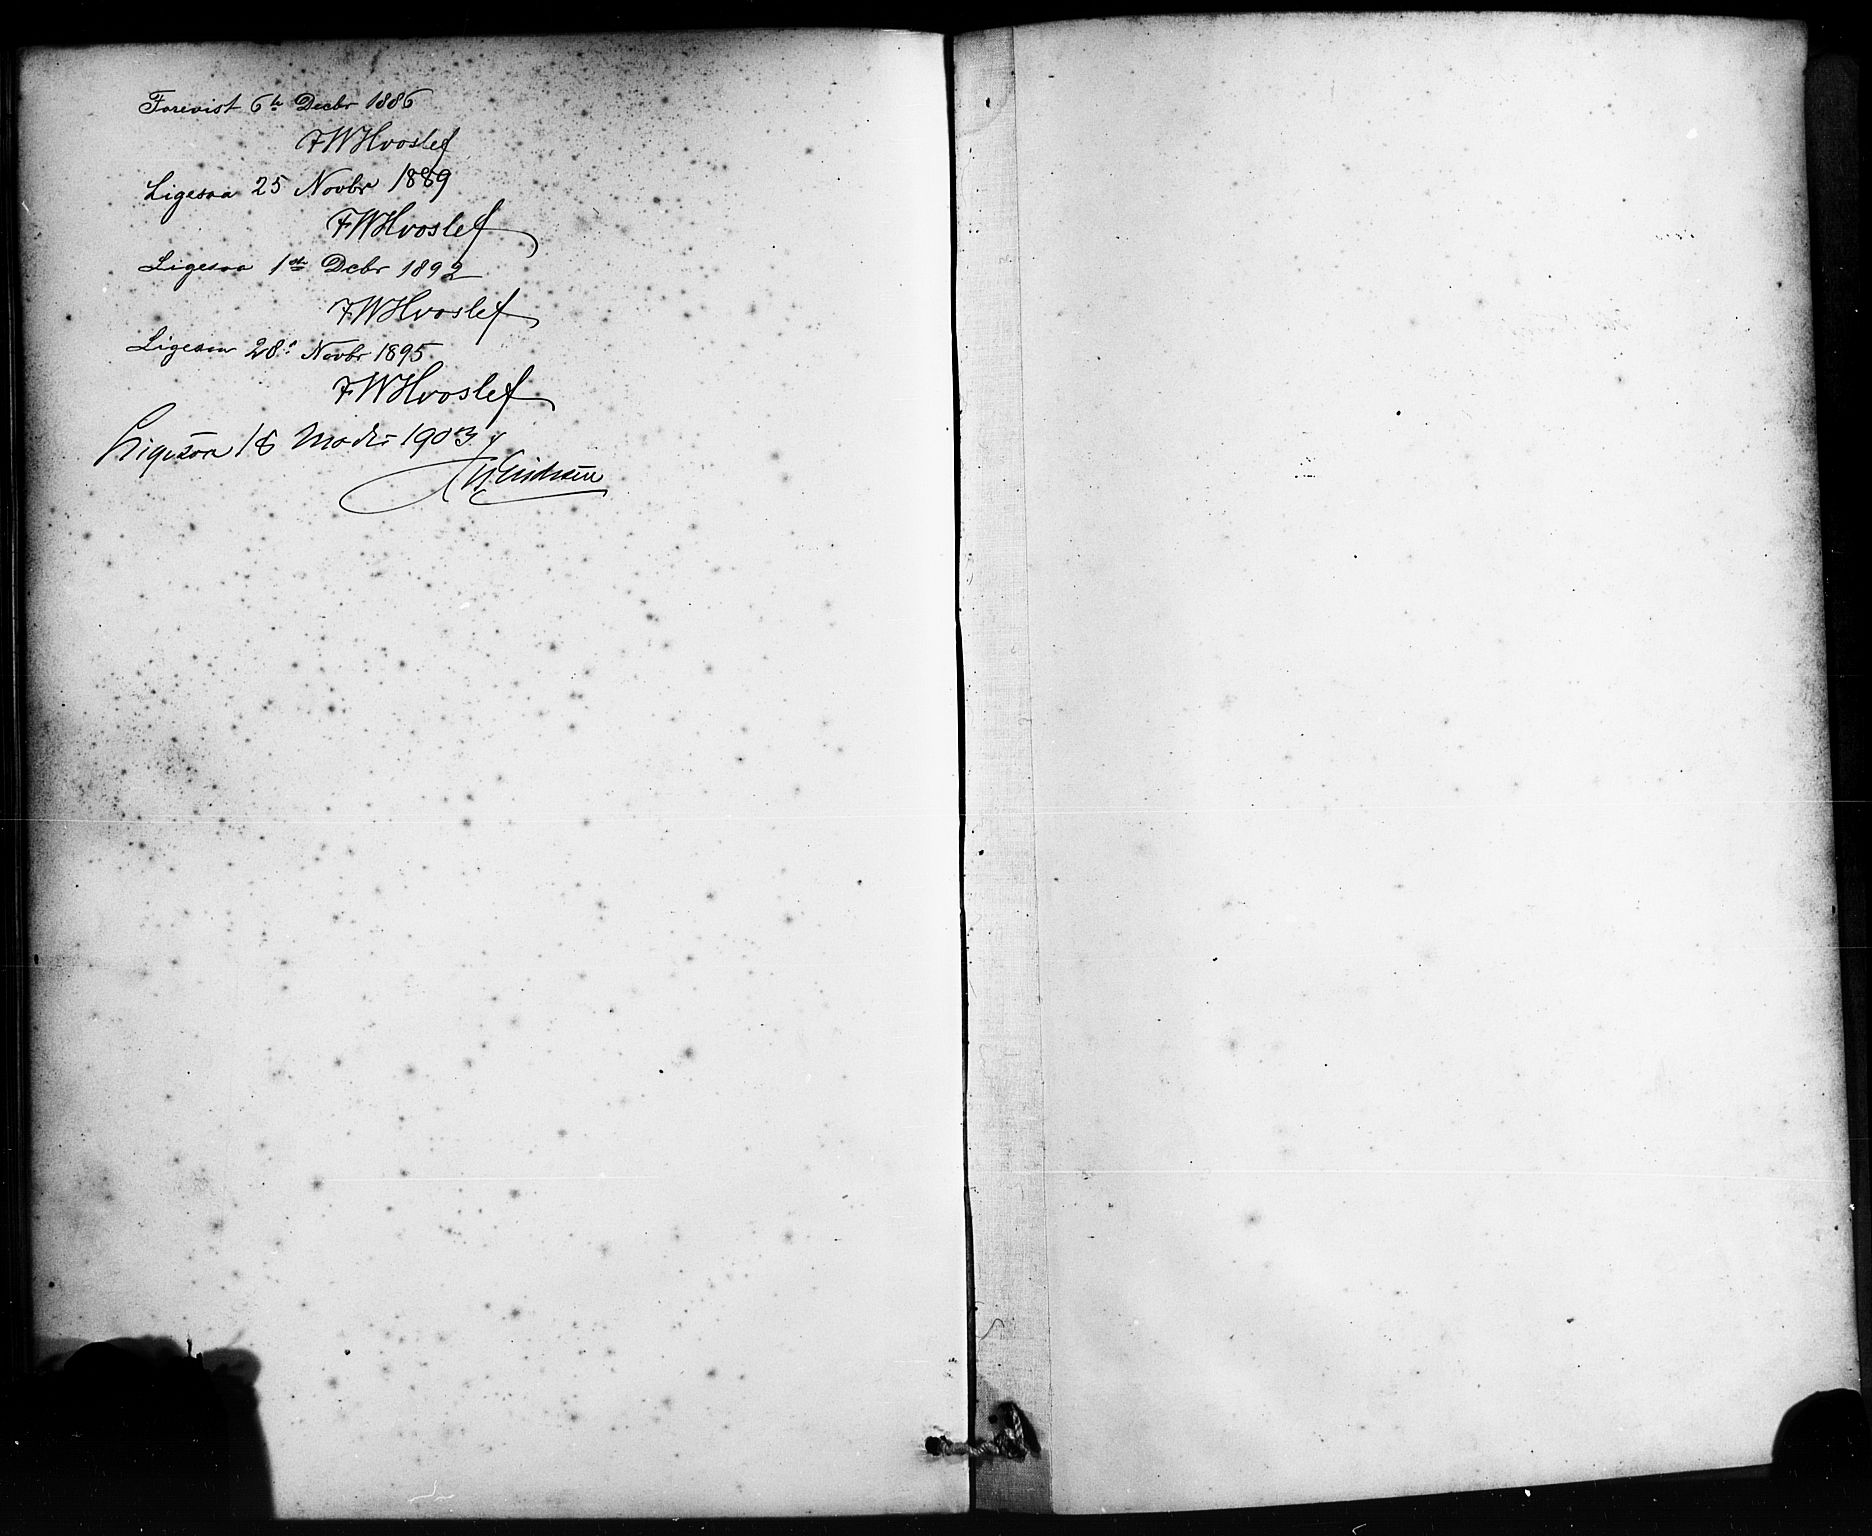 Forevist 6te Decbr 1886
FWHvoslef
Ligesaa 25 Novbr 1889
FWHvoslef
Ligesaa 1ste Dcbr 1892
FWHvoslef
Ligesaa 28. Novbr 1895
FWHvoslef
Ligesaa 18 1903